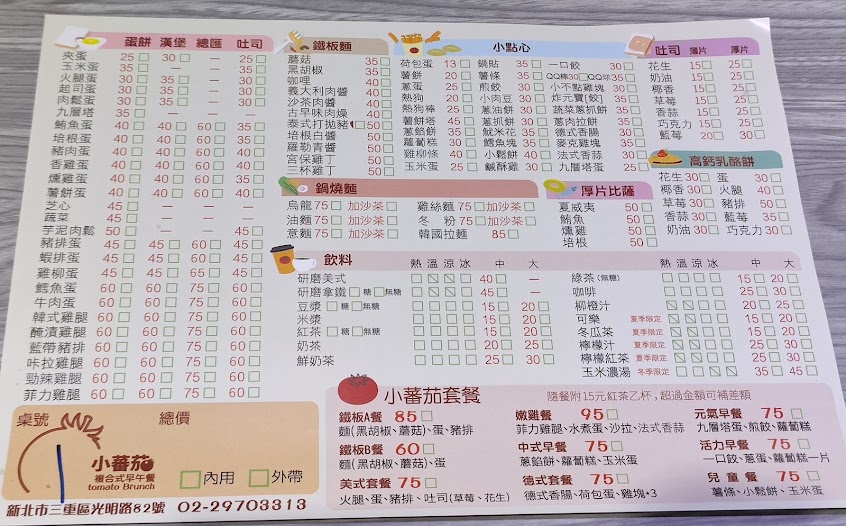 蛋餅 漢堡 總匯 吐司
夾蛋 25 30 — 25
玉米蛋 35 — — 35
火腿蛋 30 35 — 30
起司蛋 30 35 — 30
肉鬆蛋 30 35 — 30
九層塔 35 — — 35
鮪魚蛋 40 40 60 35
培根蛋 40 40 60 40
豬肉蛋 40 40 60 40
香雞蛋 40 40 60 40
燻雞蛋 40 40 60 40
薯餅蛋 40 40 60 40
芝心 45 — — —
蔬菜 45 — — —
芋泥肉鬆 50 — — 45
豬排蛋 45 45 60 45
蝦排蛋 45 45 60 45
雞柳蛋 45 45 65 45
鱈魚蛋 60 60 75 60
牛肉蛋 60 60 75 60
韓式雞腿 60 60 75 60
醃漬雞腿 60 60 75 60
藍帶豬排 60 60 75 60
咔拉雞腿 60 60 75 60
勁辣雞腿 60 60 75 60
菲力雞腿 60 60 75 60
鐵板麵
蘑菇 35
黑胡椒 35
咖哩 40
義大利肉醬 40
沙茶肉醬 40
古早味肉燥 40
泰式打拋豬 50
培根白醬 50
羅勒青醬 50
宮保雞丁 50
三杯雞丁 50
小點心
荷包蛋 13 鍋貼 35 一口餃 30
薯餅 20 薯條 35 QQ棒30 QQ球35
蔥蛋 25 煎餃 30 小不點雞塊 30
熱狗 20 小肉豆 30 炸元寶[餃] 35
熱狗棒 25 蔥油餅 30 蔬菜蔥抓餅 35
薯餅塔 45 蔥抓餅 30 蔥肉拉餅 35
蔥餡餅 35 魷米花 35 德式香腸 30
蘿蔔糕 30 鱈魚塊 35 麥克雞塊 35
雞柳條 40 小鬆餅 40 法式香蒜 30
玉米蛋 25 鹹酥雞 30 九層塔蛋 25
吐司 薄片 厚片
花生 15 25
奶油 15 25
椰香 15 25
草莓 15 25
香蒜 15 25
巧克力 15 25
藍莓 20 30
高鈣乳酪餅
花生 30 蛋 30
椰香 30 火腿 40
草莓 30 豬排 50
香蒜 30 藍莓 35
奶油 30 巧克力 30
鍋燒麵
烏龍 75 加沙茶 雞絲麵 75 加沙茶
油麵 75 加沙茶 冬 粉 75 加沙茶
意麵 75 加沙茶 韓國拉麵 85
厚片比薩
夏威夷 50
鮪魚 50
燻雞 50
培根 50
飲料 熱 溫 涼 冰 中 大
研磨美式 40 —
研磨拿鐵 糖 無糖 45 —
豆漿 糖 無糖 15 20
米漿 15 20
紅茶 糖 無糖 15 20
奶茶 20 25
鮮奶茶 25 30
熱 溫 涼 冰 中 大
綠茶(無糖) 15 20
咖啡 25 30
柳橙汁 20 25
可樂 夏季限定 15 20
冬瓜茶 夏季限定 15 20
檸檬汁 夏季限定 25 30
檸檬紅茶 夏季限定 25 30
玉米濃湯 冬季限定 35 45
小蕃茄套餐 隨餐附15元紅茶乙杯,超過金額可補差額
鐵板A餐 85 嫩雞餐 95 元氣早餐 75
麵(黑胡椒、蘑菇)、蛋、豬排 菲力雞腿、水煮蛋、沙拉、法式香蒜 九層塔蛋、煎餃、蘿蔔糕
鐵板B餐 60 中式早餐 75 活力早餐 75
麵(黑胡椒、蘑菇)、蛋 蔥餡餅、蘿蔔糕、玉米蛋 一口餃、蔥蛋、蘿蔔糕一片
美式套餐 75 德式套餐 75 兒童餐 75
火腿、蛋、豬排、吐司(草莓、花生) 德式香腸、荷包蛋、雞塊*3 薯條、小鬆餅、玉米蛋
桌號 總價
小蕃茄
複合式早午餐
tomato Brunch
內用 外帶
新北市三重區光明路82號 02-29703313